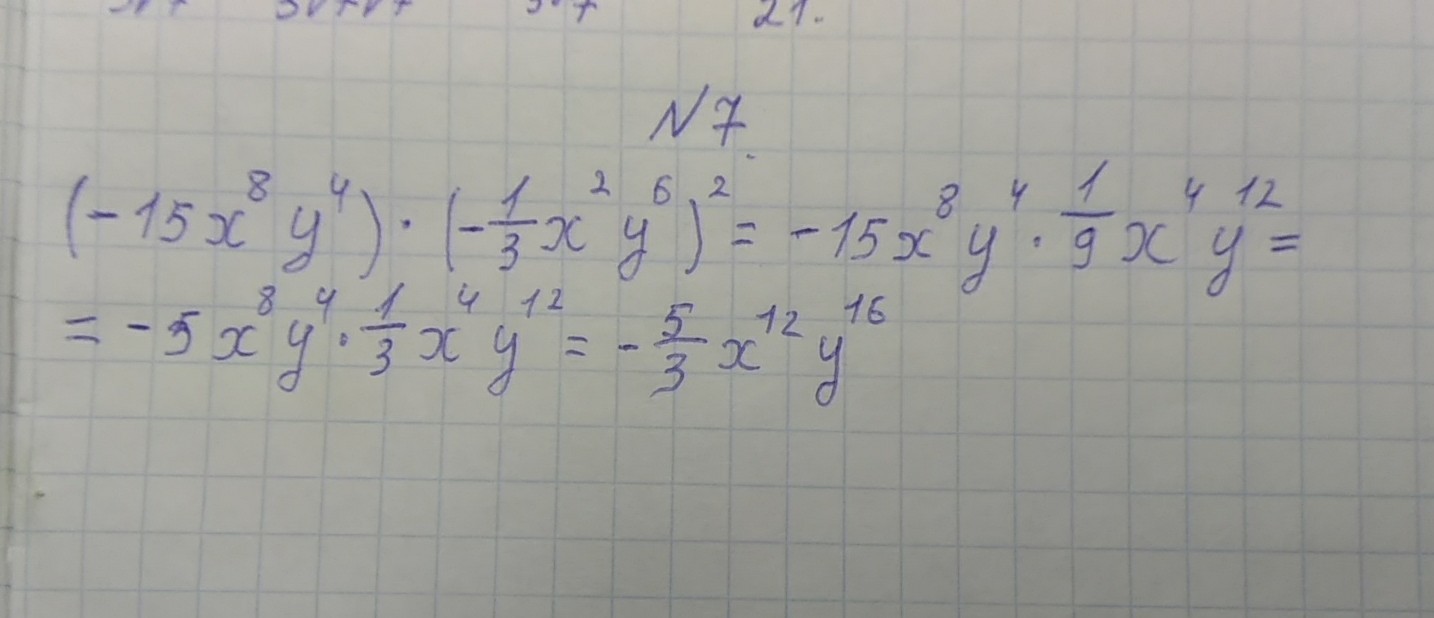 21.
N 7.
(-15x⁸y⁴)·(-1/3x²y⁶)² = -15x⁸y⁴·1/9x⁴y¹² =
= -5x⁸y⁴·1/3x⁴y¹² = -5/3x¹²y¹⁶